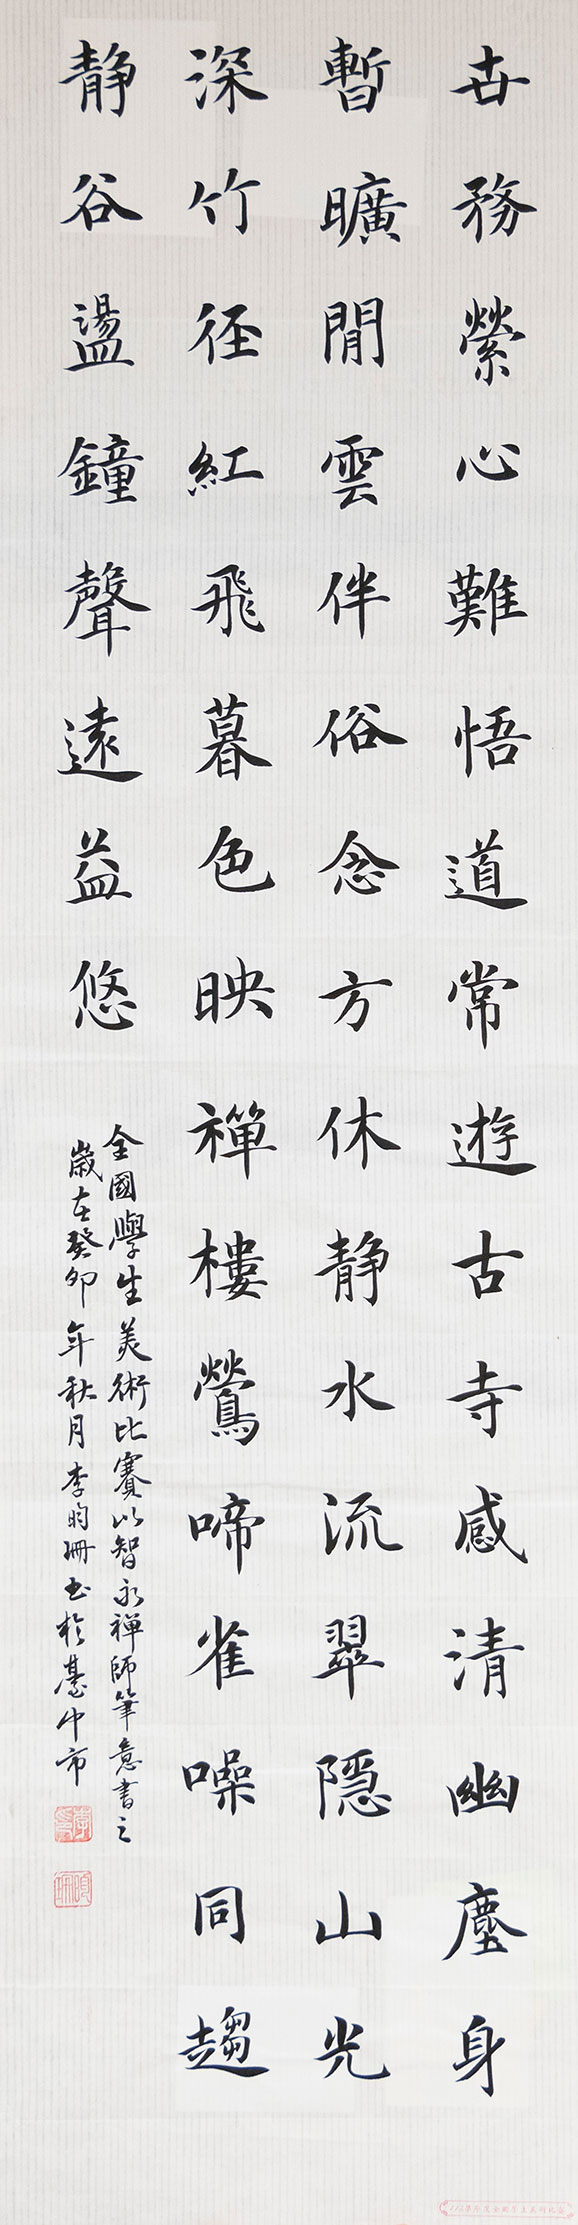 世務縈心難悟道常遊古寺感清幽塵身
暫曠閒雲伴俗念方休静水流翠隱山光
深竹徑紅飛暮色映禪樓鶯啼雀噪同趨
静谷盪鐘聲遠益悠
全國學生美術比賽以智永禪師筆意書之
歲在癸卯年秋月李昀珊書於臺中市